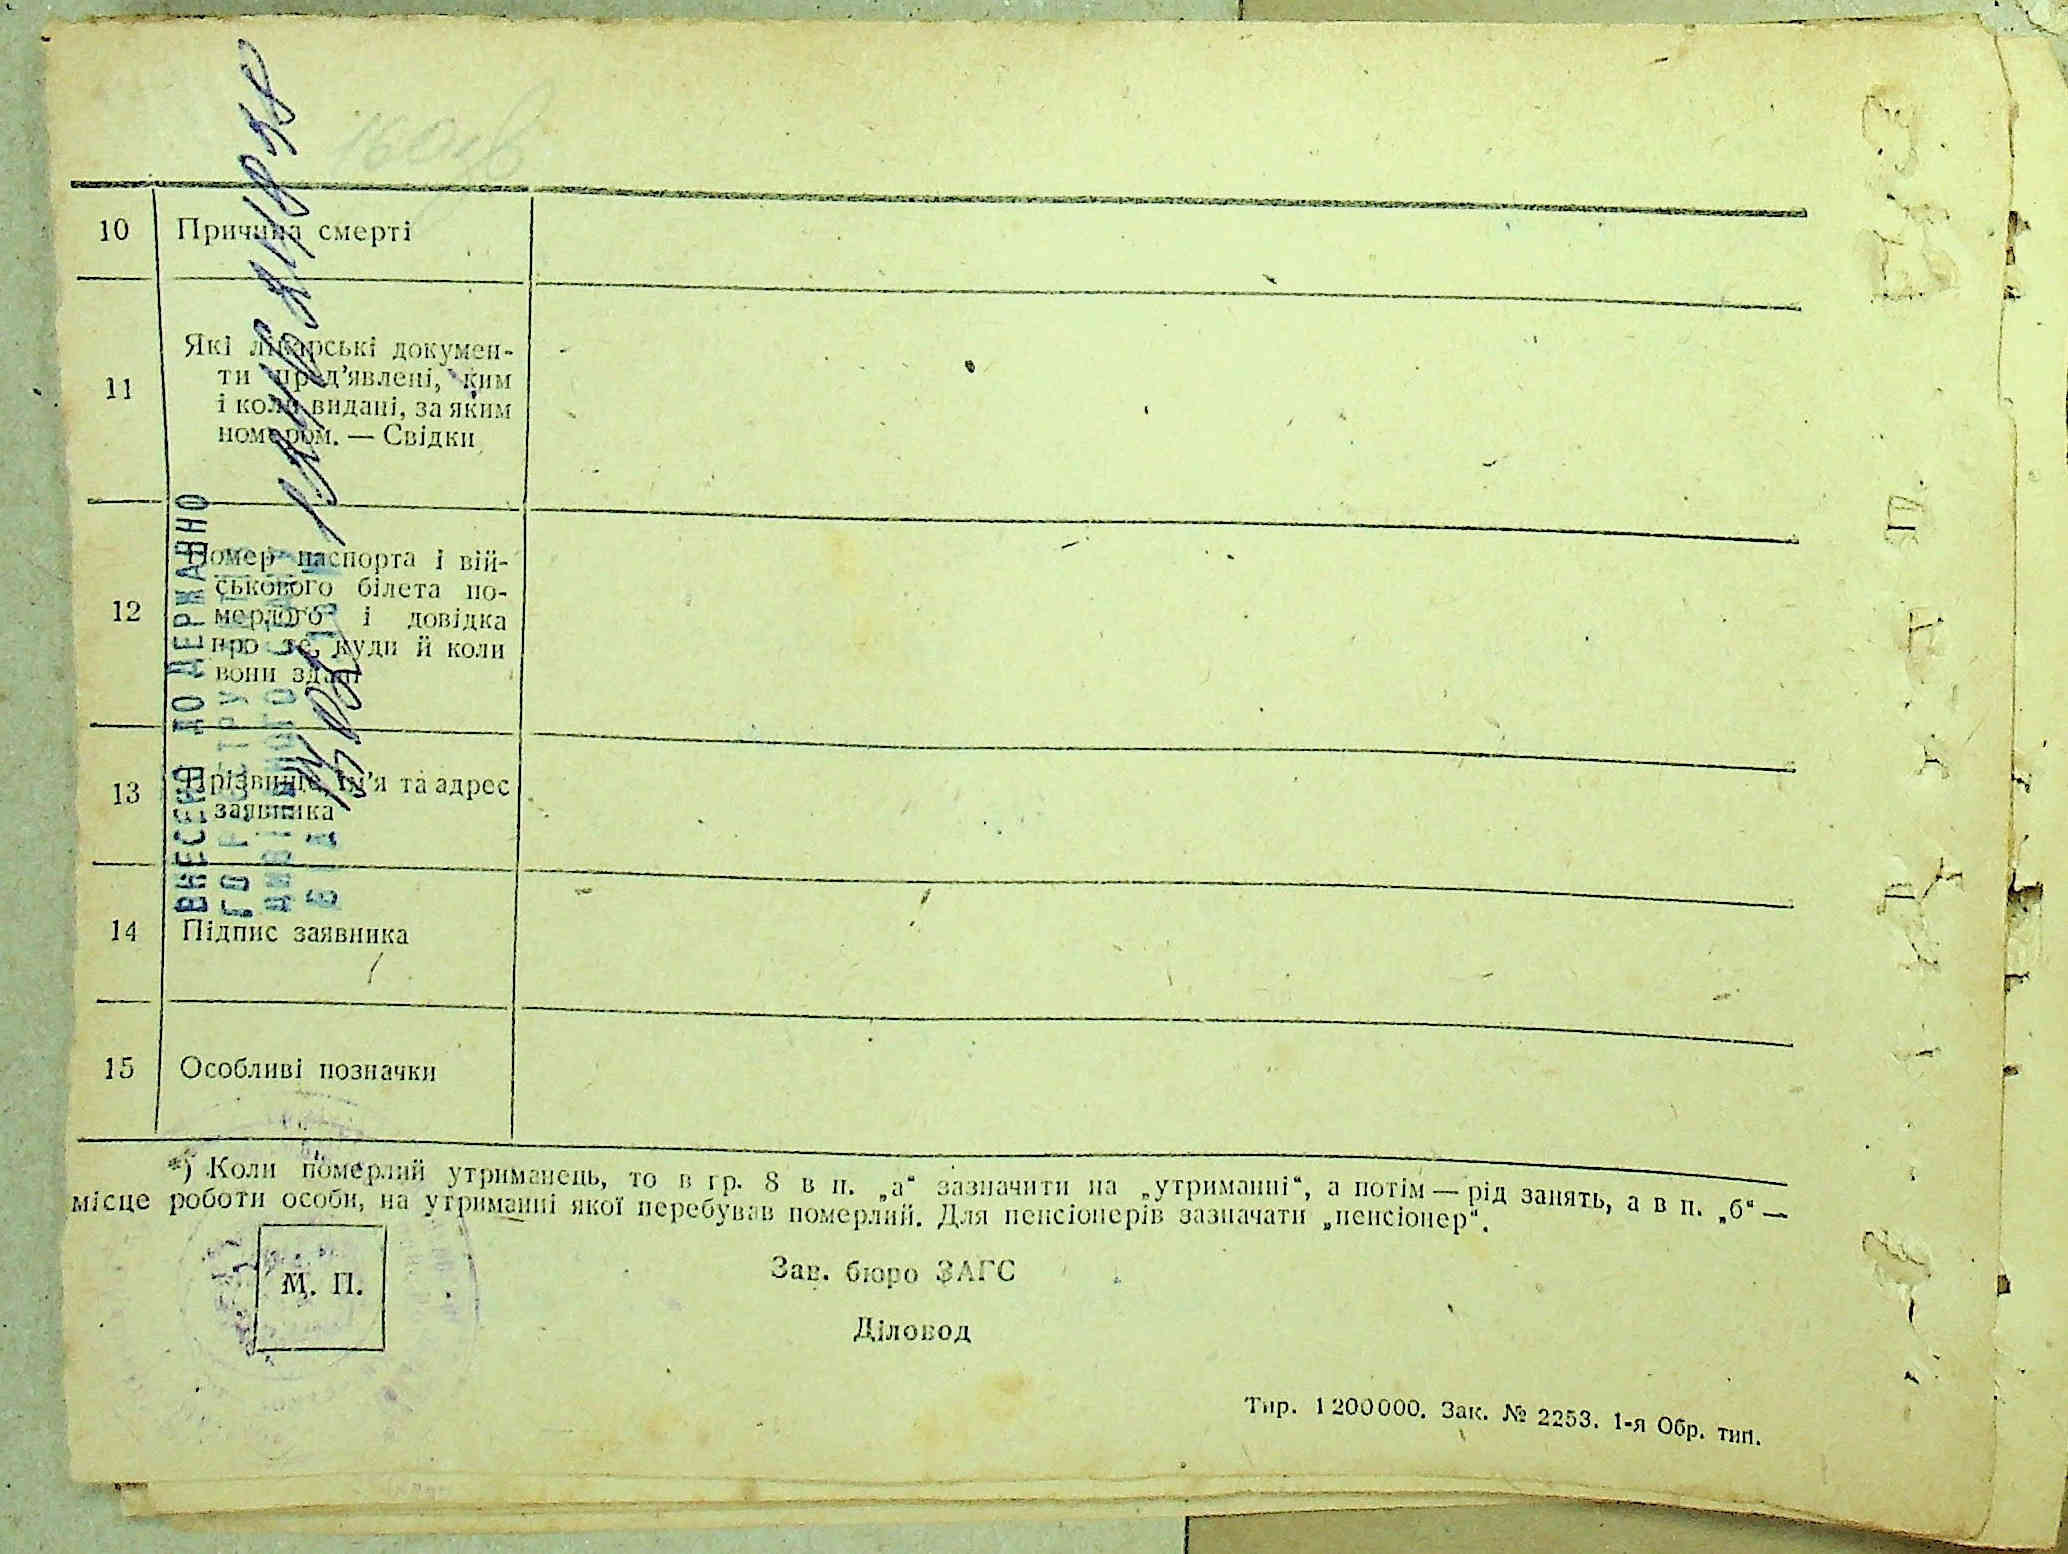 10 Причина смерті
11 Які лікарські докумен-
ти пред'явлені, ким
і коли видані, за яким
номером. — Свідки
12 Номер паспорта і вій-
ськового білета по-
мерлого і довідка
про те, куди й коли
вони здані
13 Прізвище, ім'я та адрес
заявника
14 Підпис заявника
15 Особливі позначки
ВНЕСЕНО ДО ДЕРЖАВНО
ГО РЕЄСТРУ АКТІВ
ЦИВІЛЬНОГО СТАНУ
ВІД
*) Коли померлий утриманець, то в гр. 8 в п. „а“ зазначити на „утриманні“, а потім — рід занять, а в п. „б“ —
місце роботи особи, на утриманні якої перебував померлий. Для пенсіонерів зазначати „пенсіонер“.
М. П.
Зав. бюро ЗАГС
Діловод
Тир. 1 200 000. Зак. № 2253. 1-я Обр. тип.